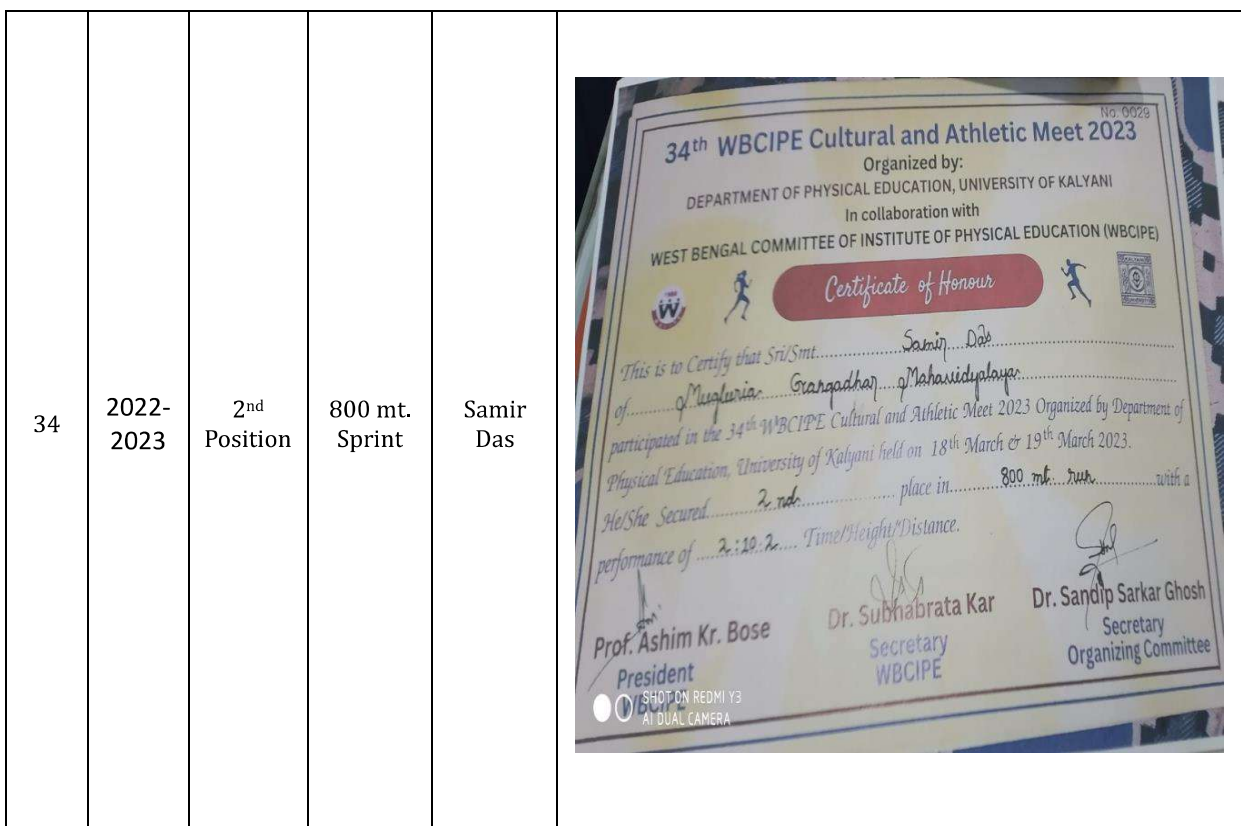 34
2022-
2023
2nd
Position
800 mt.
Sprint
Samir
Das
No. 0029
34th WBCIPE Cultural and Athletic Meet 2023
Organized by:
DEPARTMENT OF PHYSICAL EDUCATION, UNIVERSITY OF KALYANI
In collaboration with
WEST BENGAL COMMITTEE OF INSTITUTE OF PHYSICAL EDUCATION (WBCIPE)
Certificate of Honour
This is to Certify that Sri/Smt. Samir Das
of Mugberia Gangadhar Mahavidyalaya
participated in the 34th WBCIPE Cultural and Athletic Meet 2023 Organized by Department of
Physical Education, University of Kalyani held on 18th March & 19th March 2023.
He/She Secured 2nd place in 800 mt. run with a
performance of 2:10.2 Time/Height/Distance.
Prof. Ashim Kr. Bose
President
WBCIPE
Dr. Subhabrata Kar
Secretary
WBCIPE
Dr. Sandip Sarkar Ghosh
Secretary
Organizing Committee
SHOT ON REDMI Y3
AI DUAL CAMERA